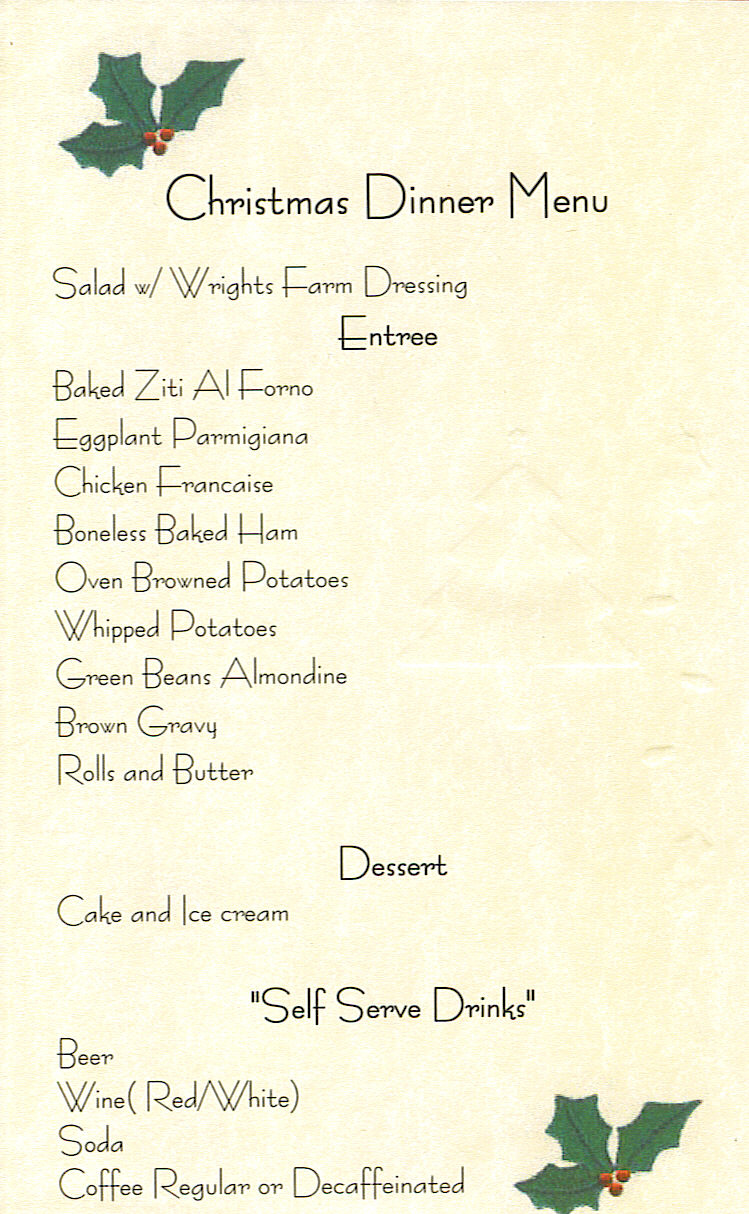 Christmas Dinner Menu
Salad w/ Wrights Farm Dressing
Entree
Baked Ziti Al Forno
Eggplant Parmigiana
Chicken Francaise
Boneless Baked Ham
Oven Browned Potatoes
Whipped Potatoes
Green Beans Almondine
Brown Gravy
Rolls and Butter
Dessert
Cake and Ice cream
"Self Serve Drinks"
Beer
Wine( Red/White)
Soda
Coffee Regular or Decaffeinated